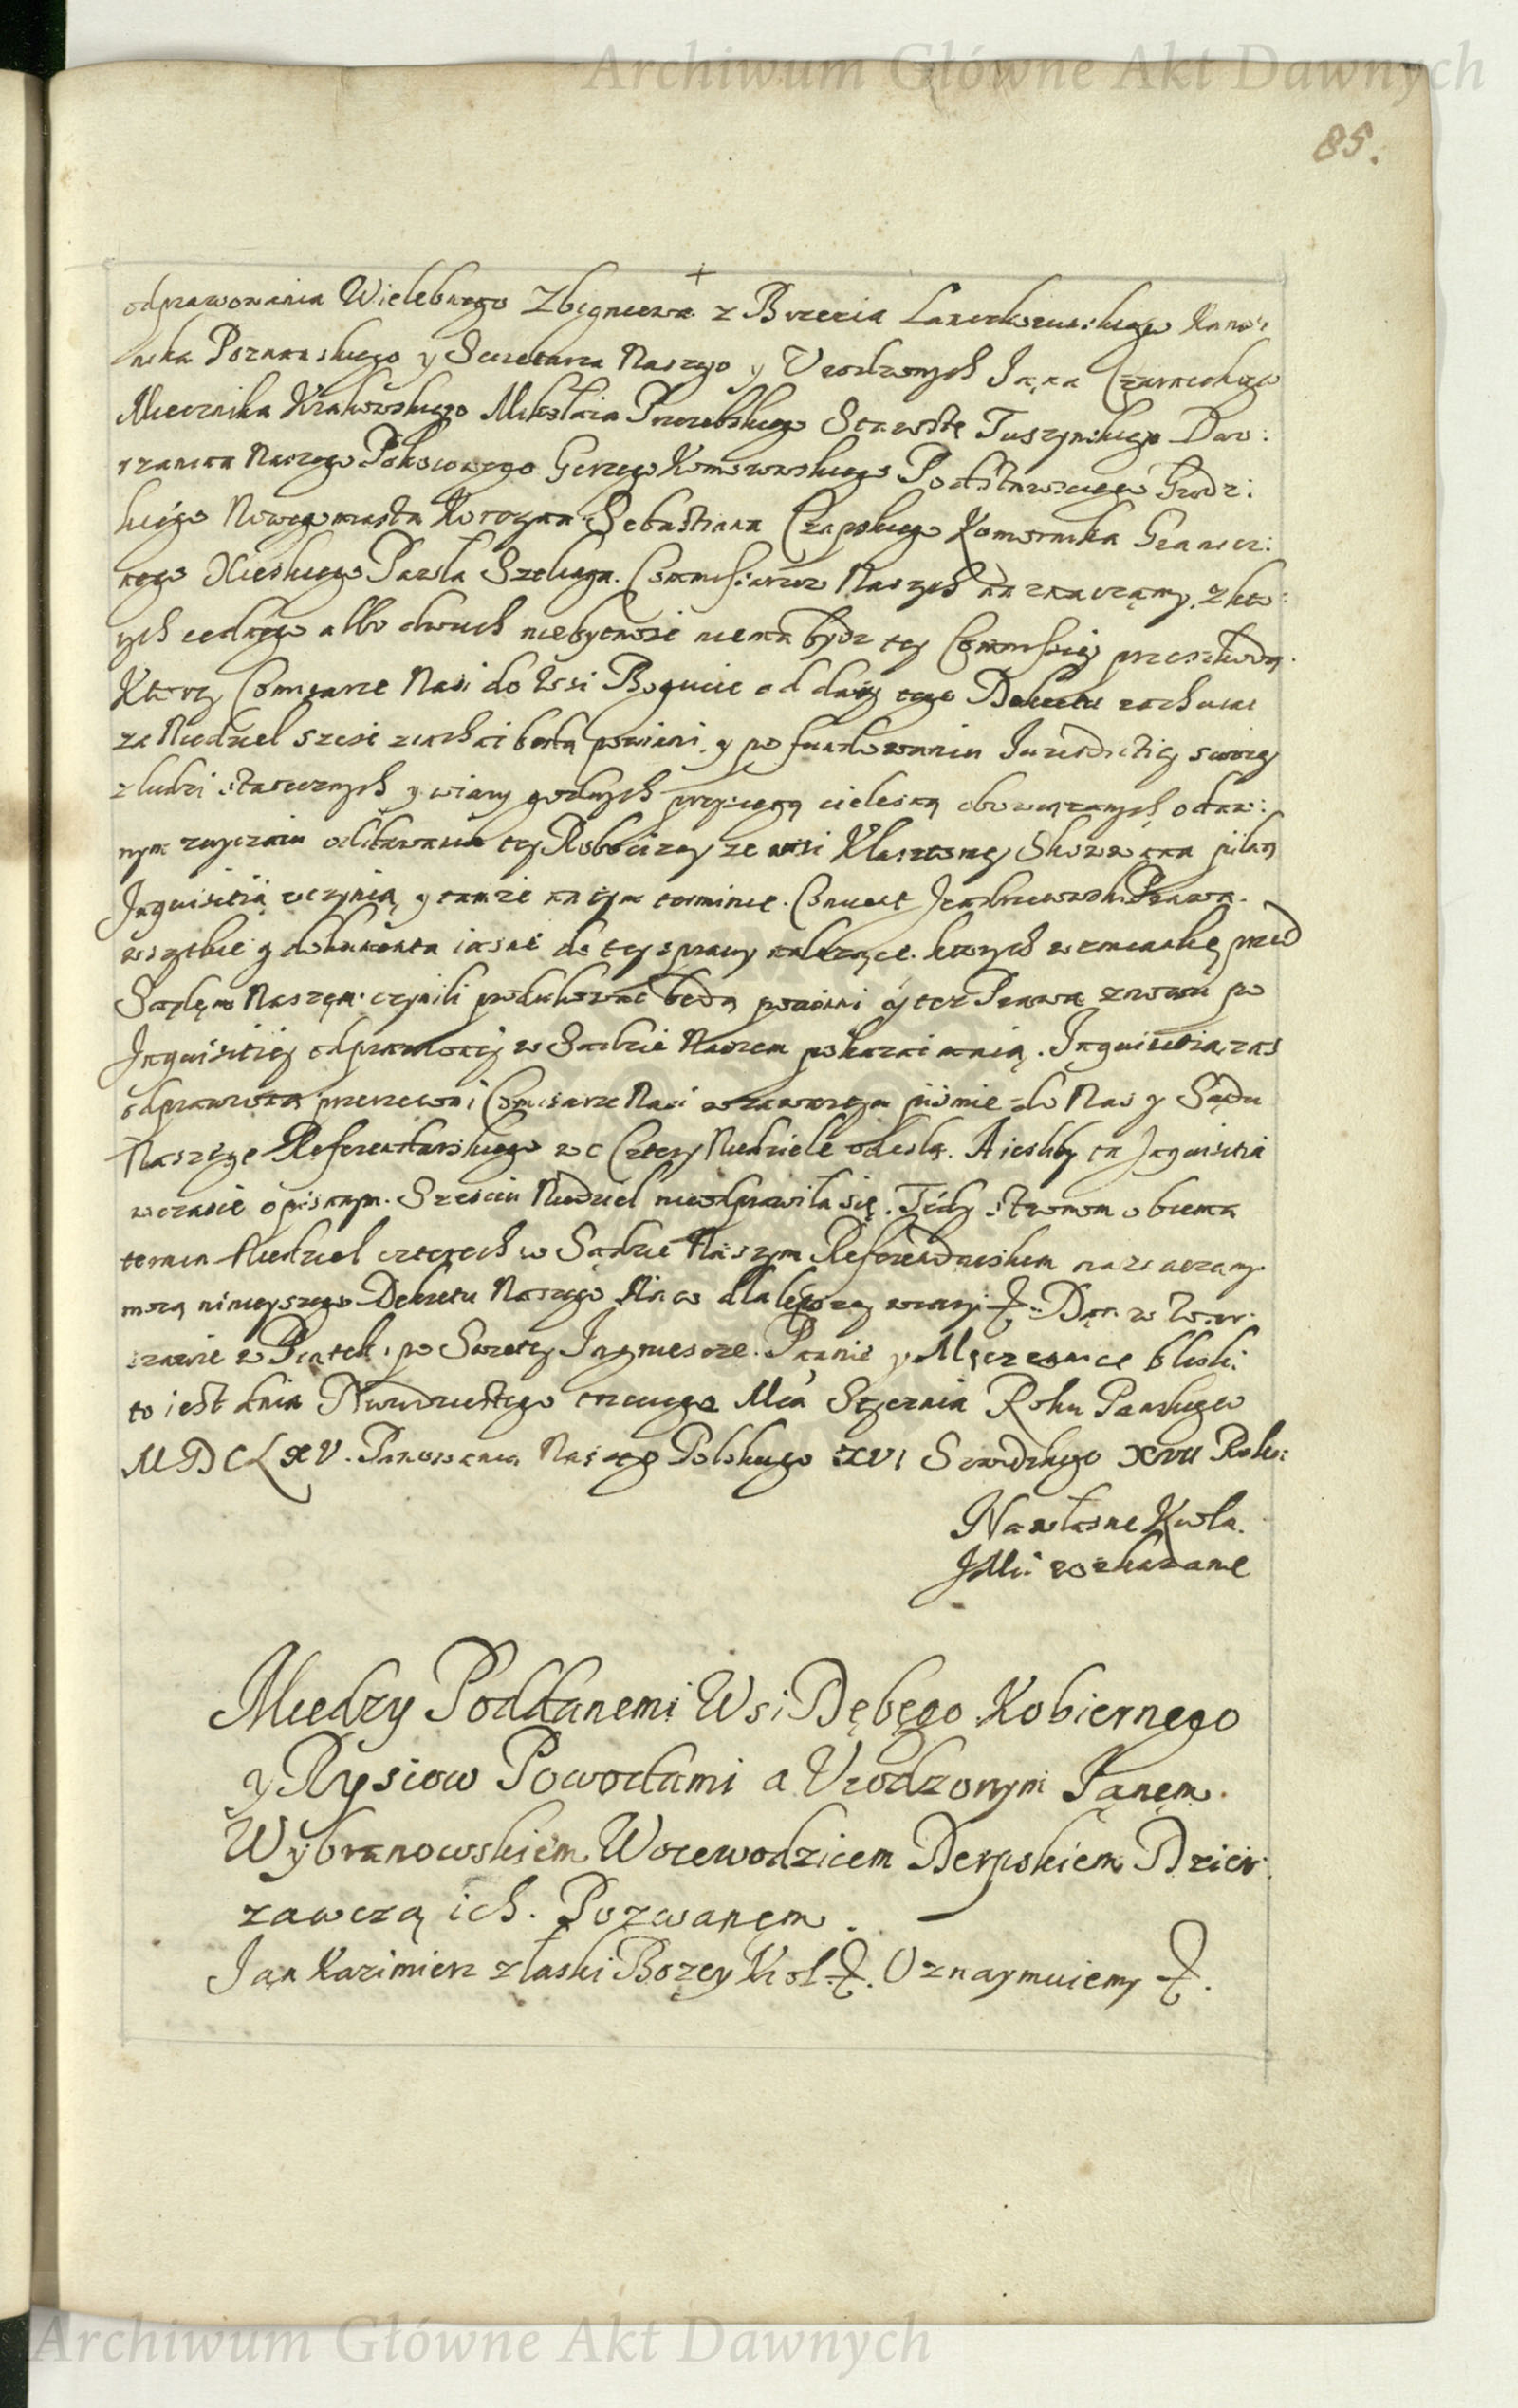 Archiwum Główne Akt Dawnych
85.
odprawowania Wielebnego Zbigniewa z Brzezia Lanckoruńskiego Kano:
nika Poznanskiego y Secretarza Naszego y Urodzonych Jana Czarneckiego
Miecznika Krakowskiego Mikołaia Przerębskiego Starostę Tuszynskiego Dwo:
rzanina Naszego Pokoiowego Gerzego Komorowskiego Podstarosciego Grodz:
kiego Nowegomiasta Korczyna Sebastiana Czapskiego Komornika Granicz:
nego Pawła Szeliga. Commissarzow Naszych naznaczamy, z kto:
rych iednego albo dwuch niebytnosc niema bydz tey Commissiey przeszkodą.
Ktorzy Commisarze Nasi do Wsi Bogucic od daty tego Dekretu rachuiac
za Niedziel szesc ziachac będą powinni. y po fundowaniu Jurisdictiey swoiey
z ludzi statecznych y wiary godnych przysięgą cielesną obowiązanych, o daw:
nym zwyczaiu oddawania tey Robocizny ze wsi Klasztorney pilną
Inquisitią uczynią, y tamże na tym terminie. Conuent Jendrzeiowski Prawa
wszytkie y dokumenta iasne do tey sprawy należące. ktorych wzmiankę przed
Sądem Naszem czynili produkowac będą powinni y też Prawa znowu po
Inquisitiey odprawioney w Sądzie Naszem pokazac maią. Inquisitią zas
odprawioną przerzeczoni Comisarze Nasi w zawartym pismie do Nas y Sądu
Naszego Referendarskiego w Cztery Niedziele odeslą. A iesliby ta Inquisitia
w czasie opisanym. Szesciu Niedziel nieodprawiła się. Tedy stronom obiema
termin Niedziel czterech w Sądzie Naszym Referendarskim naznaczamy
mocą ninieyszego Dekretu Naszego. Na co dla lepszey wiary &. Dan w War:
szawie w Piątek po Swietey Jagniescze. Pannie y Męczennice blisko
to iest dnia Dwudziestego trzeciego Mca Stycznia Roku Panskiego
MDCLXV. Panowania Naszego Polskiego XVI Szwedzkiego XVII Roku:
Na własne Krola.
JMci roskazanie
Miedzy Poddanemi Wsi Dębego Kobiernego
y Rysiow Powodami a Urodzonym Janem.
Wybranowskiem Woiewodzicem Derpskiem Dzier:
zawczą ich. Pozwanem.
Jan Kazimierz z łaski Bozey Krol &. Oznaymuiemy &.
Archiwum Główne Akt Dawnych